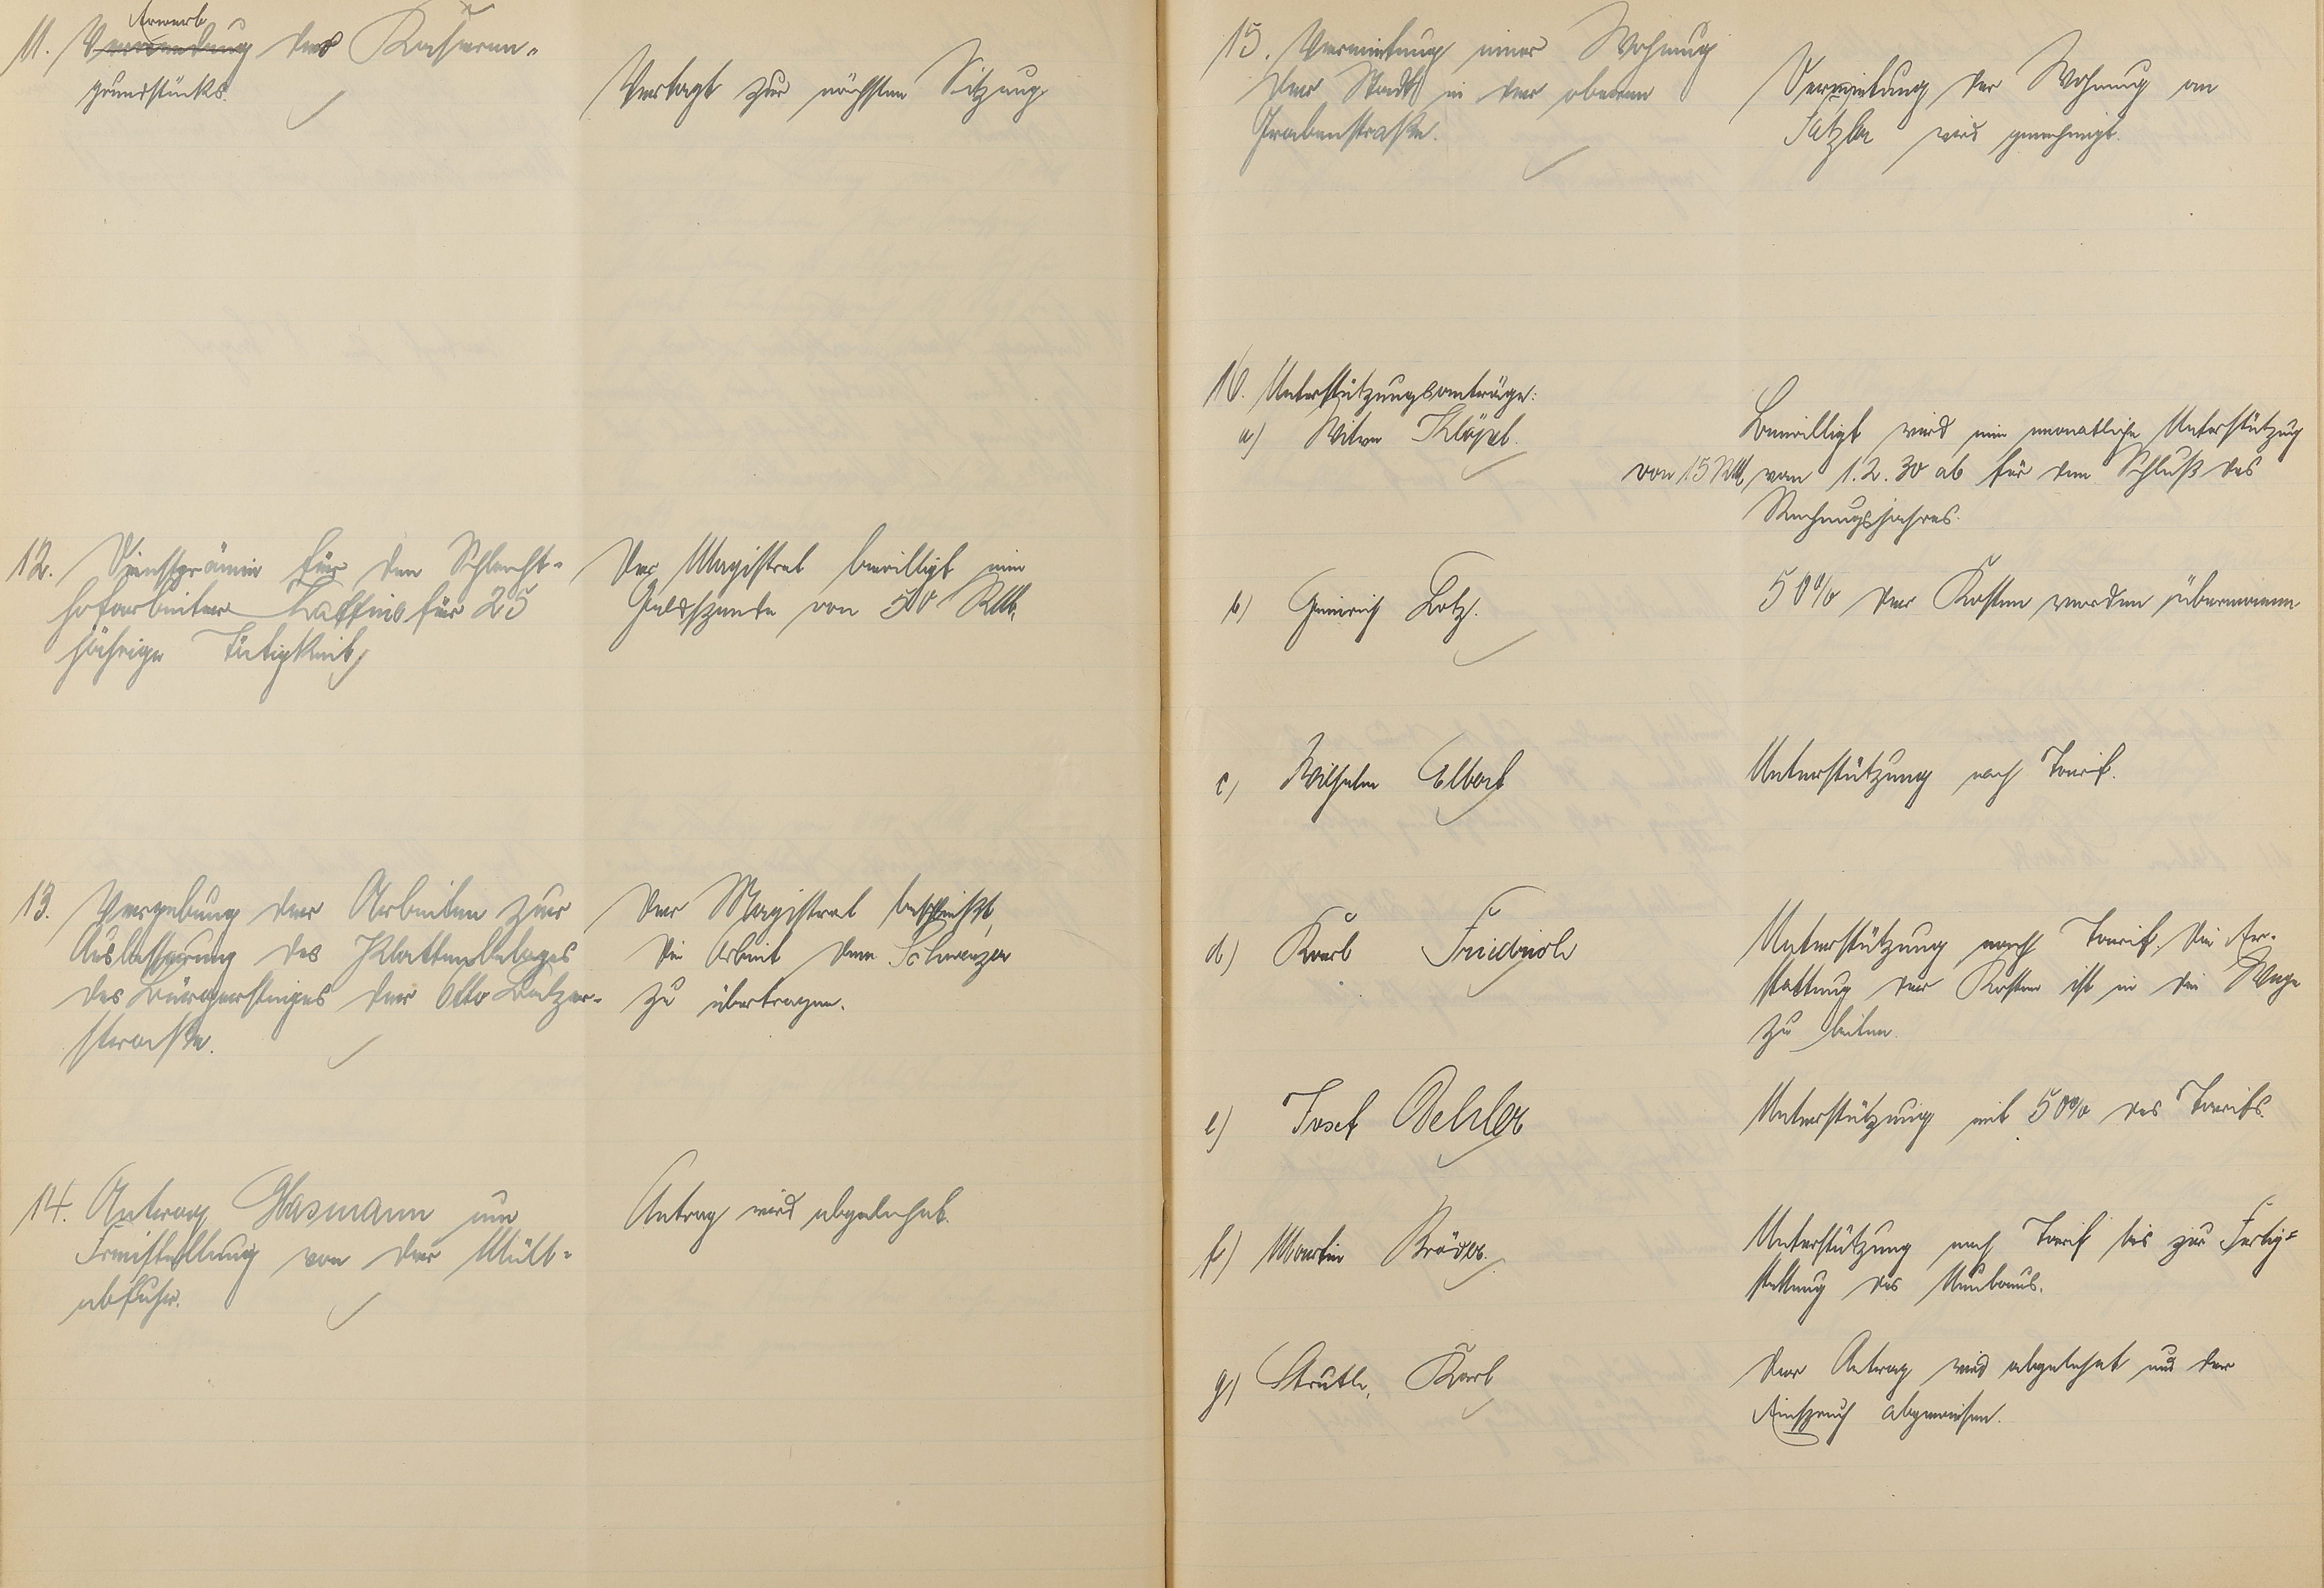 11. Erwerb
Verwendung des Kasernen-
grundstücks.
Vertagt zur nächsten Sitzung.
12. Dienstprämie für den Schlacht-
hofarbeiter für 25
jährige Tätigkeit,
Der Magistrat bewilligt eine
Geldspende von 50 RM.
13. Vergebung der Arbeiten zur
Ausbesserung des Plattenbelages
des Bürgersteiges der Otto Balzer-
straße.
Der Magistrat beschließt,
die Arbeit dem Schweizer
zu übertragen.
14. Antrag Glasmann um
Freistellung von der Müll-
abfuhr.
Antrag wird abgelehnt.
15. Vermietung einer Wohnung
der Stadt in der oberen
Grabenstraße.
Vermietung der Wohnung an
wird genehmigt.
16. Unterstützungsanträge:
a) Witwe Klöpel.
Bewilligt wird eine monatliche Unterstützung
von 15 RM, vom 1.2.30 ab für den Schluß des
Rechnungsjahres.
b) Heinrich Lotz.
50% der Kosten werden übernommen
c) Wilhelm Elbert
Unterstützung nach Tarif.
d) Karl Friedrich
Unterstützung nach Tarif. Die Er-
stattung der Kosten ist in die Wege
zu leiten.
e) Josef Oehler
Unterstützung mit 50% des Tarifs.
f) Martin Bröder.
Unterstützung nach Tarif bis zur Fertig-
stellung des Neubaus.
g) Struth, Karl
Der Antrag wird abgelehnt und der
Einspruch abgewiesen.